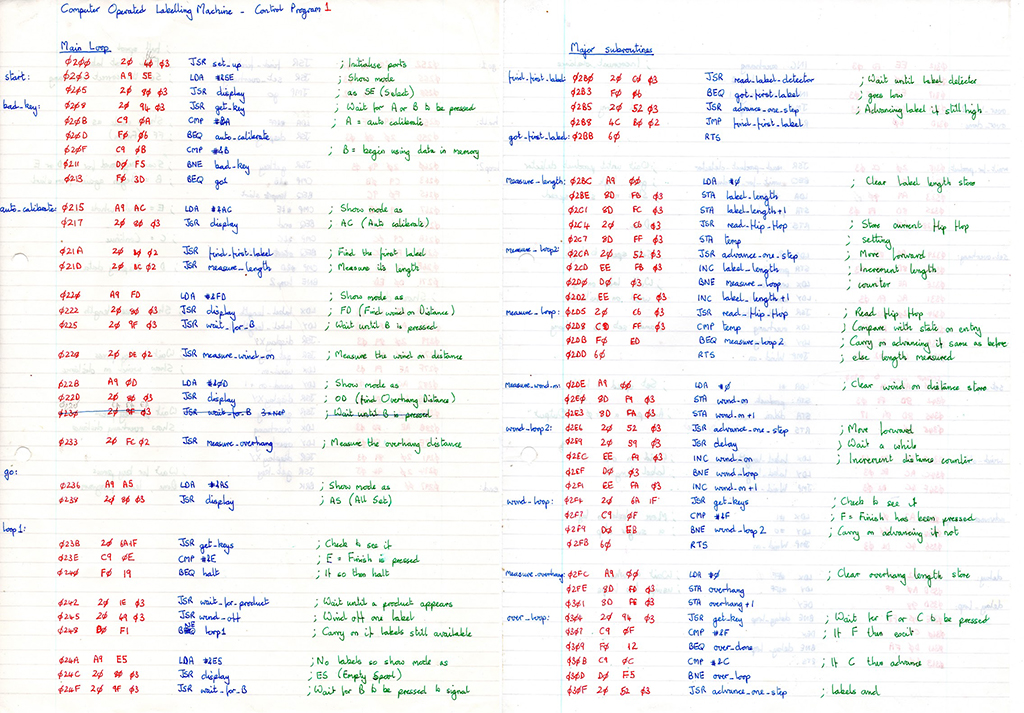 Computer Operated Labelling Machine - Control Program 1
Main Loop
Ø2ØØ 2Ø 4Ø Ø3 JSR set_up ; Initialise ports
start: Ø2Ø3 A9 5E LDA #&5E ; Show mode
Ø2Ø5 2Ø 8Ø Ø3 JSR display ; as SE (Select)
bad_key: Ø2Ø8 2Ø 94 Ø3 JSR get_key ; Wait for A or B to be pressed
Ø2ØB C9 ØA CMP #&A ; A = auto calibrate
Ø2ØD FØ Ø6 BEQ auto_calibrate
Ø2ØF C9 ØB CMP #&B ; B = begin using data in memory
Ø211 DØ F5 BNE bad_key
Ø213 FØ 3D BEQ go1
auto_calibrate: Ø215 A9 AC LDA #&AC ; Show mode as
Ø217 2Ø 8Ø Ø3 JSR display ; AC (Auto calibrate)
Ø21A 2Ø BØ Ø2 JSR find_first_label ; Find the first label
Ø21D 2Ø BC Ø2 JSR measure_length ; Measure its length
Ø22Ø A9 FD LDA #&FD ; Show mode as
Ø222 2Ø 8Ø Ø3 JSR display ; FD (Find wind on Distance)
Ø225 2Ø 9F Ø3 JSR wait_for_B ; Wait until B is pressed
Ø228 2Ø DE Ø2 JSR measure_wind_on ; Measure the wind on distance
Ø22B A9 ØD LDA #&ØD ; Show mode as
Ø22D 2Ø 8Ø Ø3 JSR display ; OD (find Overhang Distance)
Ø23Ø 2Ø 9F Ø3 JSR wait_for_B 3×NOP ; Wait until B is pressed
Ø233 2Ø FC Ø2 JSR measure_overhang ; Measure the overhang distance
go:
Ø236 A9 A5 LDA #&A5 ; Show mode as
Ø238 2Ø 8Ø Ø3 JSR display ; AS (All Set)
loop1:
Ø23B 2Ø 6A 1F JSR get_keys ; Check to see if
Ø23E C9 ØE CMP #&E ; E = Finish is pressed
Ø24Ø FØ 19 BEQ halt ; If so then halt
Ø242 2Ø 1E Ø3 JSR wait_for_product ; Wait until a product appears
Ø245 2Ø 69 Ø3 JSR wind_off ; Wind off one label
Ø248 DØ F1 BNE loop1 ; Carry on if labels still available
Ø24A A9 E5 LDA #&E5 ; No labels so show mode as
Ø24C 2Ø 8Ø Ø3 JSR display ; ES (Empty Spool)
Ø24F 2Ø 9F Ø3 JSR wait_for_B ; Wait for B to be pressed to signal
Major subroutines
find_first_label: Ø2BØ 2Ø C6 Ø3 JSR read_label_detector ; Wait until label detector
Ø2B3 FØ Ø6 BEQ got_first_label ; goes low
Ø2B5 2Ø 52 Ø3 JSR advance_one_step ; Advancing label if still high
Ø2B8 4C BØ Ø2 JMP find_first_label
got_first_label: Ø2BB 6Ø RTS
measure_length: Ø2BC A9 ØØ LDA #Ø ; Clear Label length store
Ø2BE 8D FB Ø3 STA label_length
Ø2C1 8D FC Ø3 STA label_length+1
Ø2C4 2Ø C6 Ø3 JSR read_Hip_Hop ; Store current Hip Hop
Ø2C7 8D FF Ø3 STA temp ; setting
measure_loop2: Ø2CA 2Ø 52 Ø3 JSR advance_one_step ; Move forward
Ø2CD EE FB Ø3 INC label_length ; Increment length
Ø2DØ DØ Ø3 BNE measure_loop ; counter
Ø2D2 EE FC Ø3 INC label_length+1
measure_loop: Ø2D5 2Ø C6 Ø3 JSR read_Hip_Hop ; Read Hip Hop
Ø2D8 CD FF Ø3 CMP temp ; Compare with state on entry
Ø2DB FØ ED BEQ measure_loop2 ; Carry on advancing if same as before
Ø2DD 6Ø RTS ; else length measured
measure_wind_on: Ø2DE A9 ØØ LDA #Ø ; Clear wind on distance store
Ø2EØ 8D F9 Ø3 STA wind_on
Ø2E3 8D FA Ø3 STA wind_on+1
wind_loop2: Ø2E6 2Ø 52 Ø3 JSR advance_one_step ; Move forward
Ø2E9 2Ø 59 Ø3 JSR delay ; Wait a while
Ø2EC EE F9 Ø3 INC wind_on ; Increment distance counter
Ø2EF DØ Ø3 BNE wind_loop
Ø2F1 EE FA Ø3 INC wind_on+1
wind_loop: Ø2F4 2Ø 6A 1F JSR get_keys ; Check to see if
Ø2F7 C9 ØF CMP #&F ; F = Finish has been pressed
Ø2F9 DØ EB BNE wind_loop2 ; Carry on advancing if not
Ø2FB 6Ø RTS
measure_overhang: Ø2FC A9 ØØ LDA #Ø ; Clear overhang length store
Ø2FE 8D FD Ø3 STA overhang
Ø3Ø1 8D FE Ø3 STA overhang+1
over_loop: Ø3Ø4 2Ø 94 Ø3 JSR get_key ; Wait for F or C to be pressed
Ø3Ø7 C9 ØF CMP #&F ; If F then exit
Ø3Ø9 FØ 12 BEQ over_done
Ø3ØB C9 ØC CMP #&C ; If C then advance
Ø3ØD DØ F5 BNE over_loop
Ø3ØF 2Ø 52 Ø3 JSR advance_one_step ; labels and